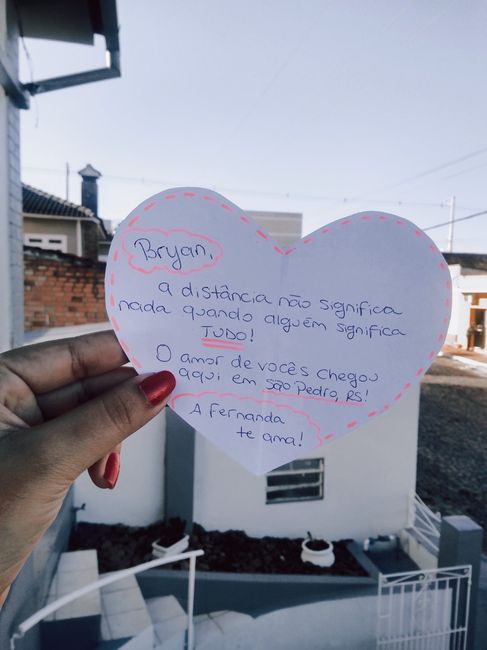 Bryan,
a distância não significa
nada quando alguém significa
TUDO!
O amor de vocês chegou
aqui em São Pedro, RS!
A Fernanda
te ama!